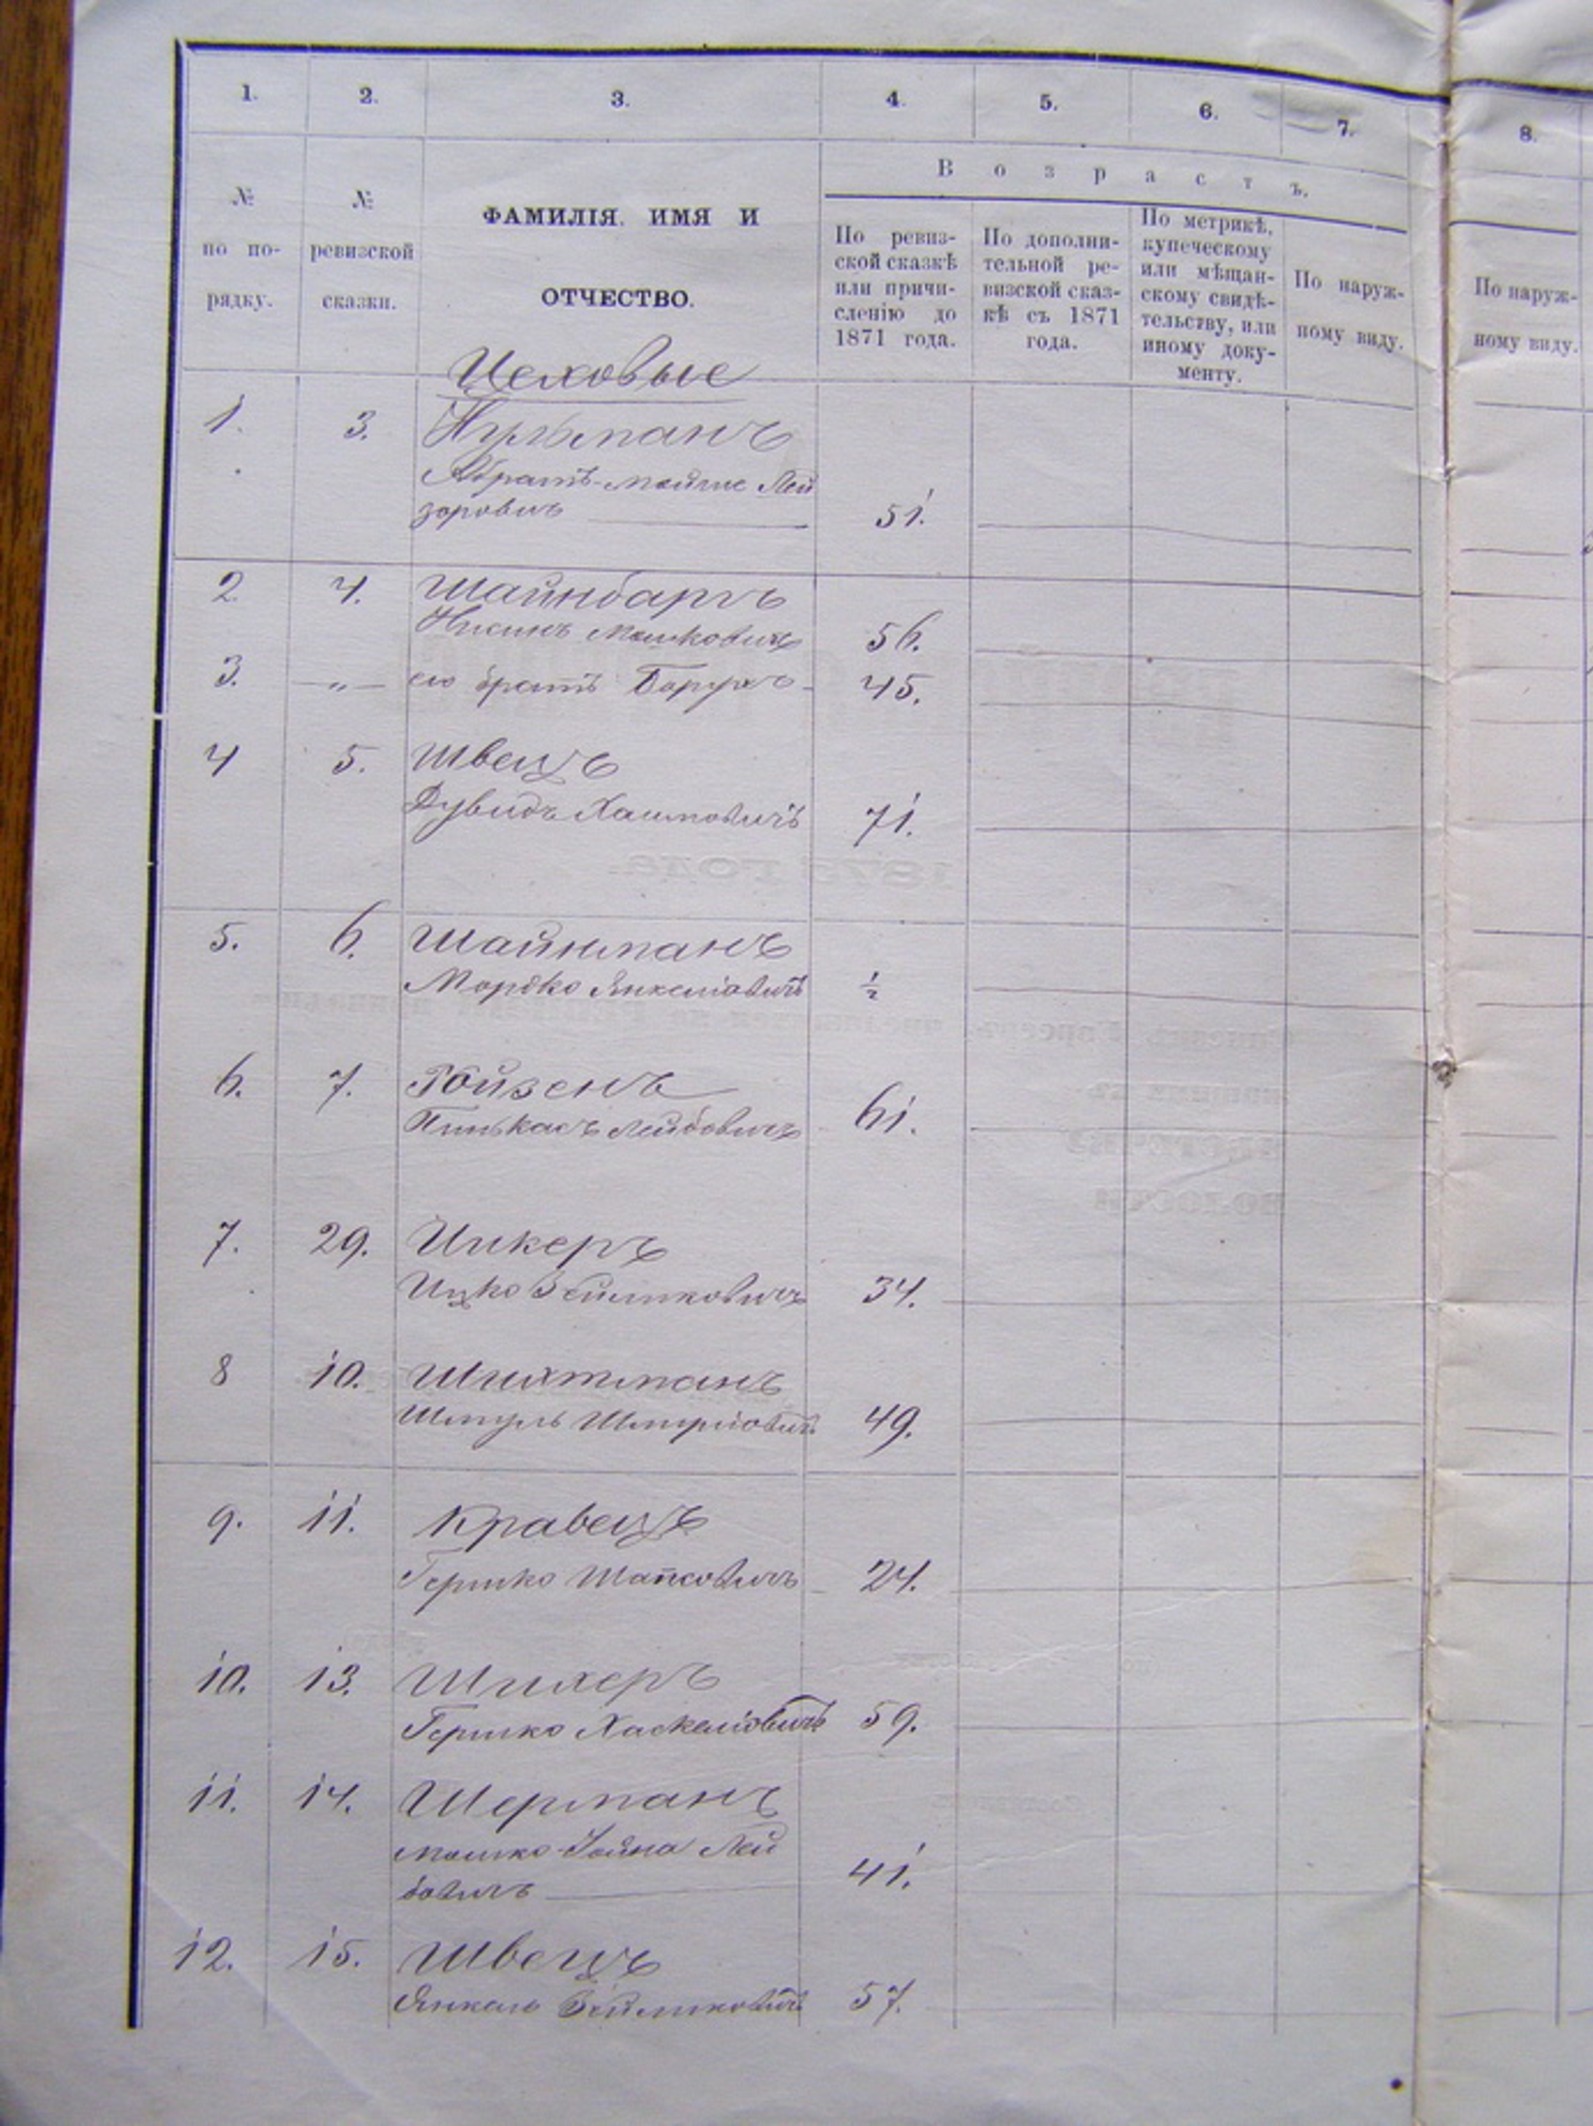 1. 2. 3. 4. 5. 6. 7. 8.
№ по по-рядку.
№ ревизской сказки.
ФАМИЛІЯ. ИМЯ И
ОТЧЕСТВО.
Возрастъ.
По ревиз-
ской сказкѣ
или причи-
сленію до
1871 года.
По дополни-
тельной ре-
визской сказ-
кѣ съ 1871
года.
По метрикѣ,
купеческому
или мѣщан-
скому свидѣ-
тельству, или
иному доку-
менту.
По наруж-
ному виду.
По наруж-
ному виду.
Цеховые
1. 3.
Абрамъ-Мойше Лей
зоровичъ 51.
2 4. Шайнбаргъ
Нисинъ Мошковичъ 56.
3. -„- его братъ Борухъ 45.
4 5. Швецъ
Дувидъ Хаимовичъ 71.
5. 6. Шайнманъ
Мордко Янкелiовичъ ½
6. 7. Ройзенъ
Пинькасъ Лейбовичъ 61.
7. 29. Цикеръ
Ицко Зейликовичъ 34.
8 10. Шлихтманъ
Шмуль Шмулiовичъ 49.
9. 11. Кравецъ
Гершко Шапсовичъ 24.
10. 13. Шихеръ
Гершко Хаскелiовичъ 59.
11. 14. Шерманъ
Мошко-Іойна Лей
бовичъ 41.
12. 15. Швецъ
Янкель Зейликовичъ 57.